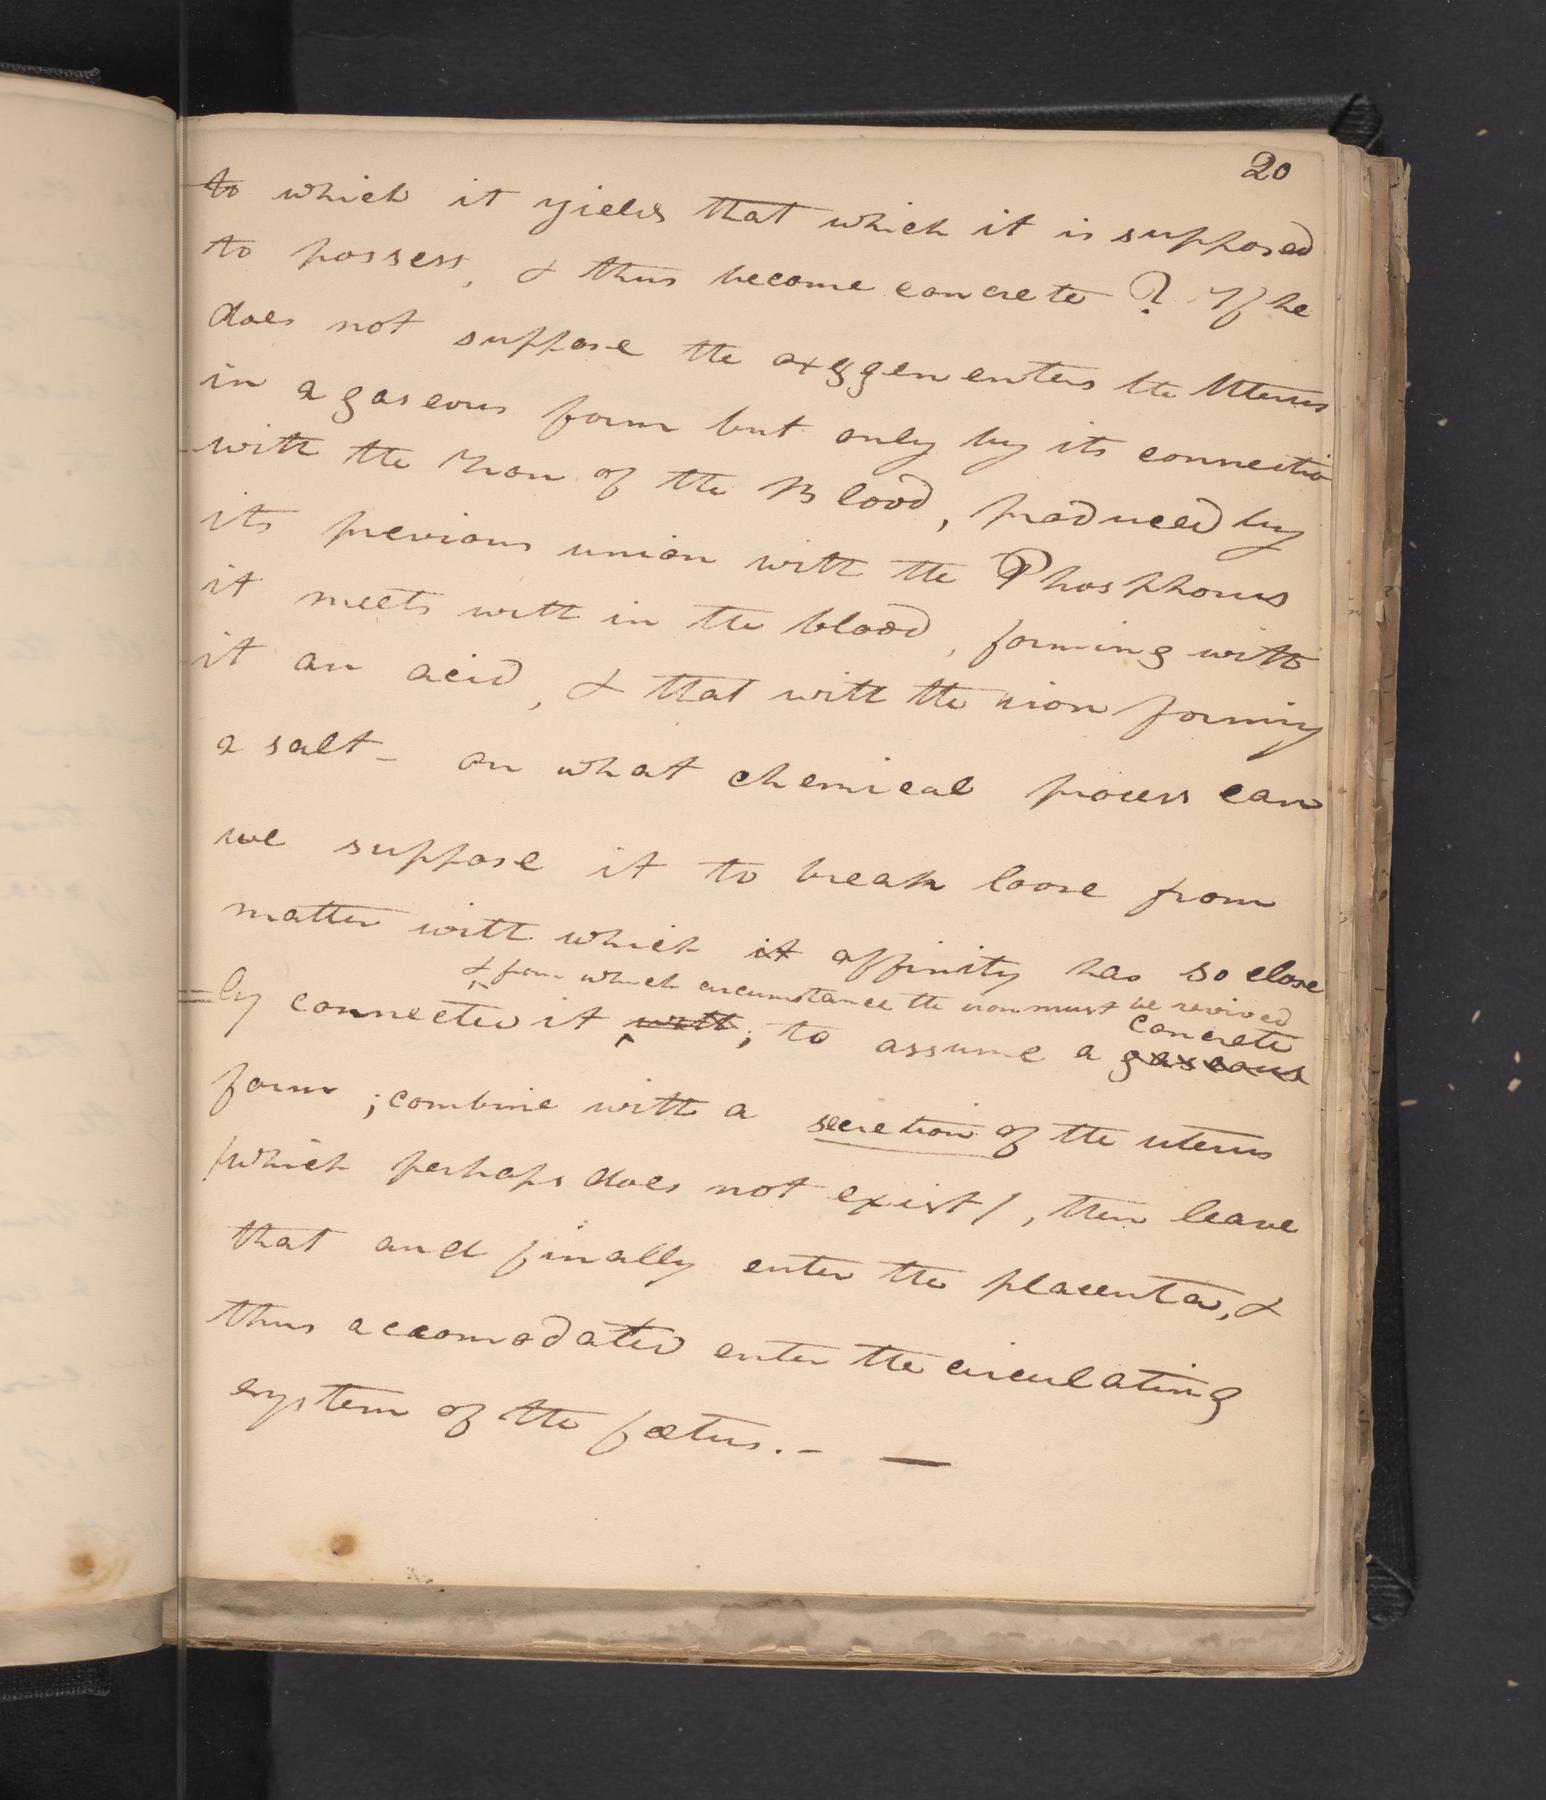 20
to which it yields that which it is supposed
to possess, & thus become concrete? If he
does not suppose the oxygen enters the Uterus
in a gaseous form but only by its connectio
with the Iron of the Blood, produced by
its previous union with the Phosphorus
it meets with in the blood, forming with
it an acid, & that with the iron forming
a salt - on what chemical process can
we suppose it to break loose from
matter with which it affinity has so close
& from which circumstance the iron must be revived
concrete
=ly connected it with; to assume a gaseous
form; combine with a secretion of the uterus
/which perhaps does not exist/, then leave
that and finally enter the placenta, &
thus accomodated enter the circulating
system of the fœtus. - —